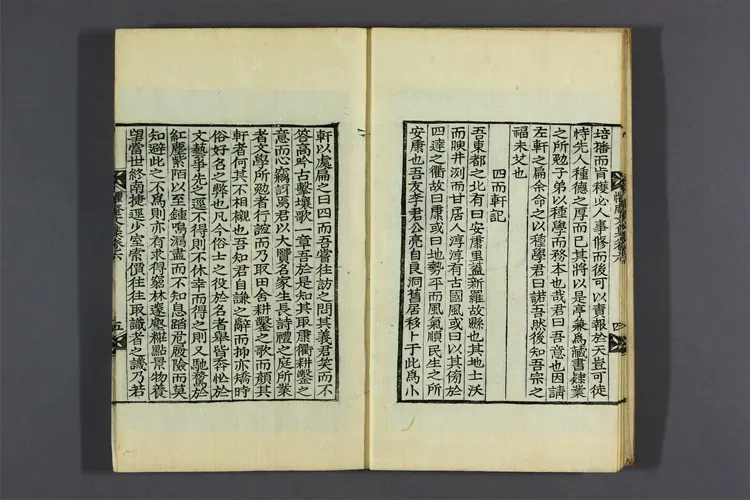 培播而肯穫必人事修而後可以責報於天豈可徒
恃先人種德之厚而已其將以是亭兼爲藏書肄業
之所勉子弟以種學而務本也哉君曰吾意也因請
左軒之扁余命之以種學君曰諾吾然後知吾宗之
福未艾也
四而軒記
吾東都之北有曰安康里蓋新羅故縣也其地土沃
而腴井洌而甘居人淳淳有古國風或曰以其傍於
四達之衢故曰康或曰地勢平而風氣順民生之所
安康也吾友李君公亮自良洞舊居移卜于此爲小
軒以處扁之曰四而吾嘗往訪之問其義君笑而不
答高吟古擊壤歌一章吾於是知其取康衢耕鑿之
意而心竊訝焉君以大賢名家生長詩禮之庭所業
者文學所勉者行誼而乃取田舍耕鑿之歌而顏其
軒者何其不相襯也吾知君自謙之辭而抑亦矯時
俗好名之弊也凡今俗士之役於名者擧皆舂忪於
文藝爭先之逕不得則不休幸而得之則又馳騖於
紅塵紫陌以至鍾鳴漏盡而不知息蹈危履險而莫
知避此之不爲則亦有求得窮林邃壑粧點景物養
望當世終南捷逕少室索價往往取識者之譏乃若